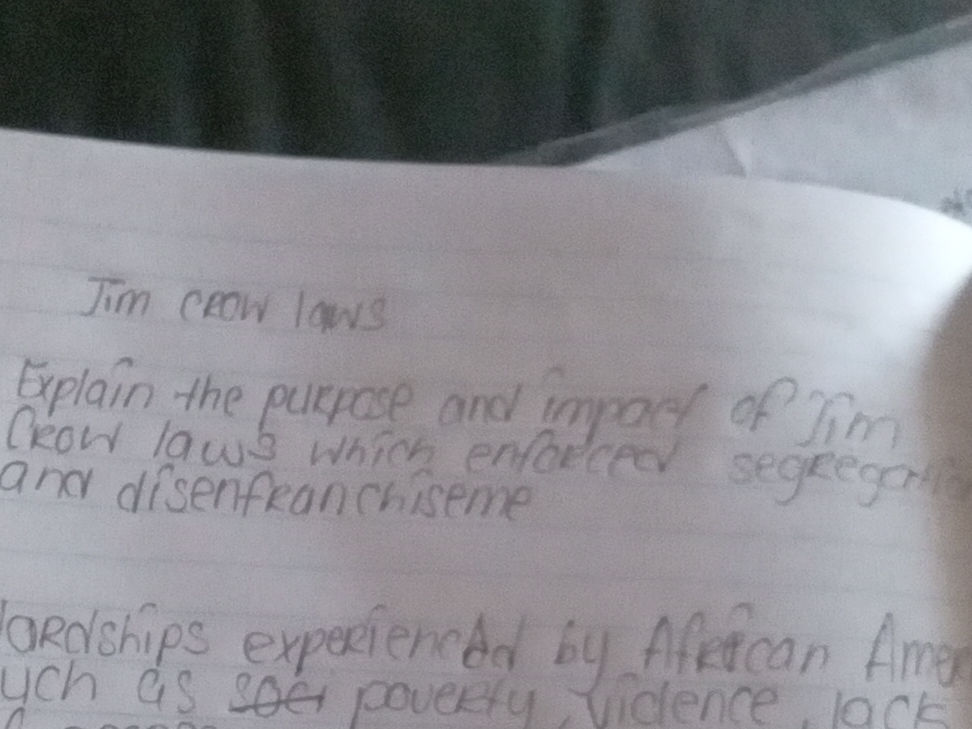 Jim CROW laws
Explain the purpose and impact of Jim
Crow laws which enforced segregatio
and disenfranchiseme
ardships experienced by African Amer
uch as poverty, violence, lack